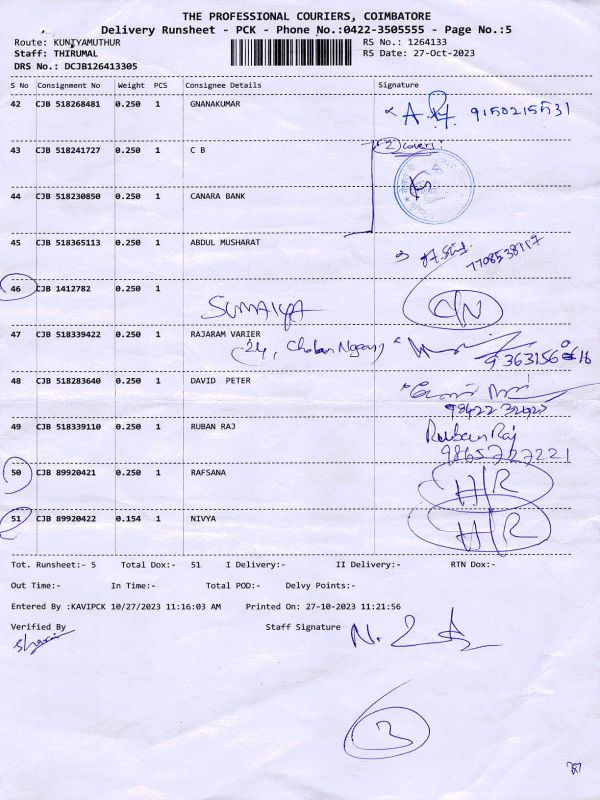 THE PROFESSIONAL COURIERS, COIMBATORE
Delivery Runsheet - PCK - Phone No.:0422-3505555 - Page No.:5
Route: KUNIYAMUTHUR RS No.: 1264133
Staff: THIRUMAL RS Date: 27-Oct-2023
DRS No.: DCJB126413305
S No Consignment No Weight PCS Consignee Details Signature
42 CJB 518268481 0.250 1 GNANAKUMAR 9150215531
43 CJB 518241727 0.250 1 C B 2 cover
44 CJB 518230850 0.250 1 CANARA BANK
45 CJB 518365113 0.250 1 ABDUL MUSHARAT
7708538117
46 CJB 1412782 0.250 1
SUMAIYA C/N
47 CJB 518339422 0.250 1 RAJARAM VARIER
24,
48 CJB 518283640 0.250 1 DAVID PETER
49 CJB 518339110 0.250 1 RUBAN RAJ Ruban Raj
9865727221
50 CJB 89920421 0.250 1 RAFSANA H/R
51 CJB 89920422 0.154 1 NIVYA H/R
Tot. Runsheet:- 5 Total Dox:- 51 I Delivery:- II Delivery:- RTN Dox:-
Out Time:- In Time:- Total POD:- Delvy Points:-
Entered By :KAVIPCK 10/27/2023 11:16:03 AM Printed On: 27-10-2023 11:21:56
Verified By Staff Signature
3